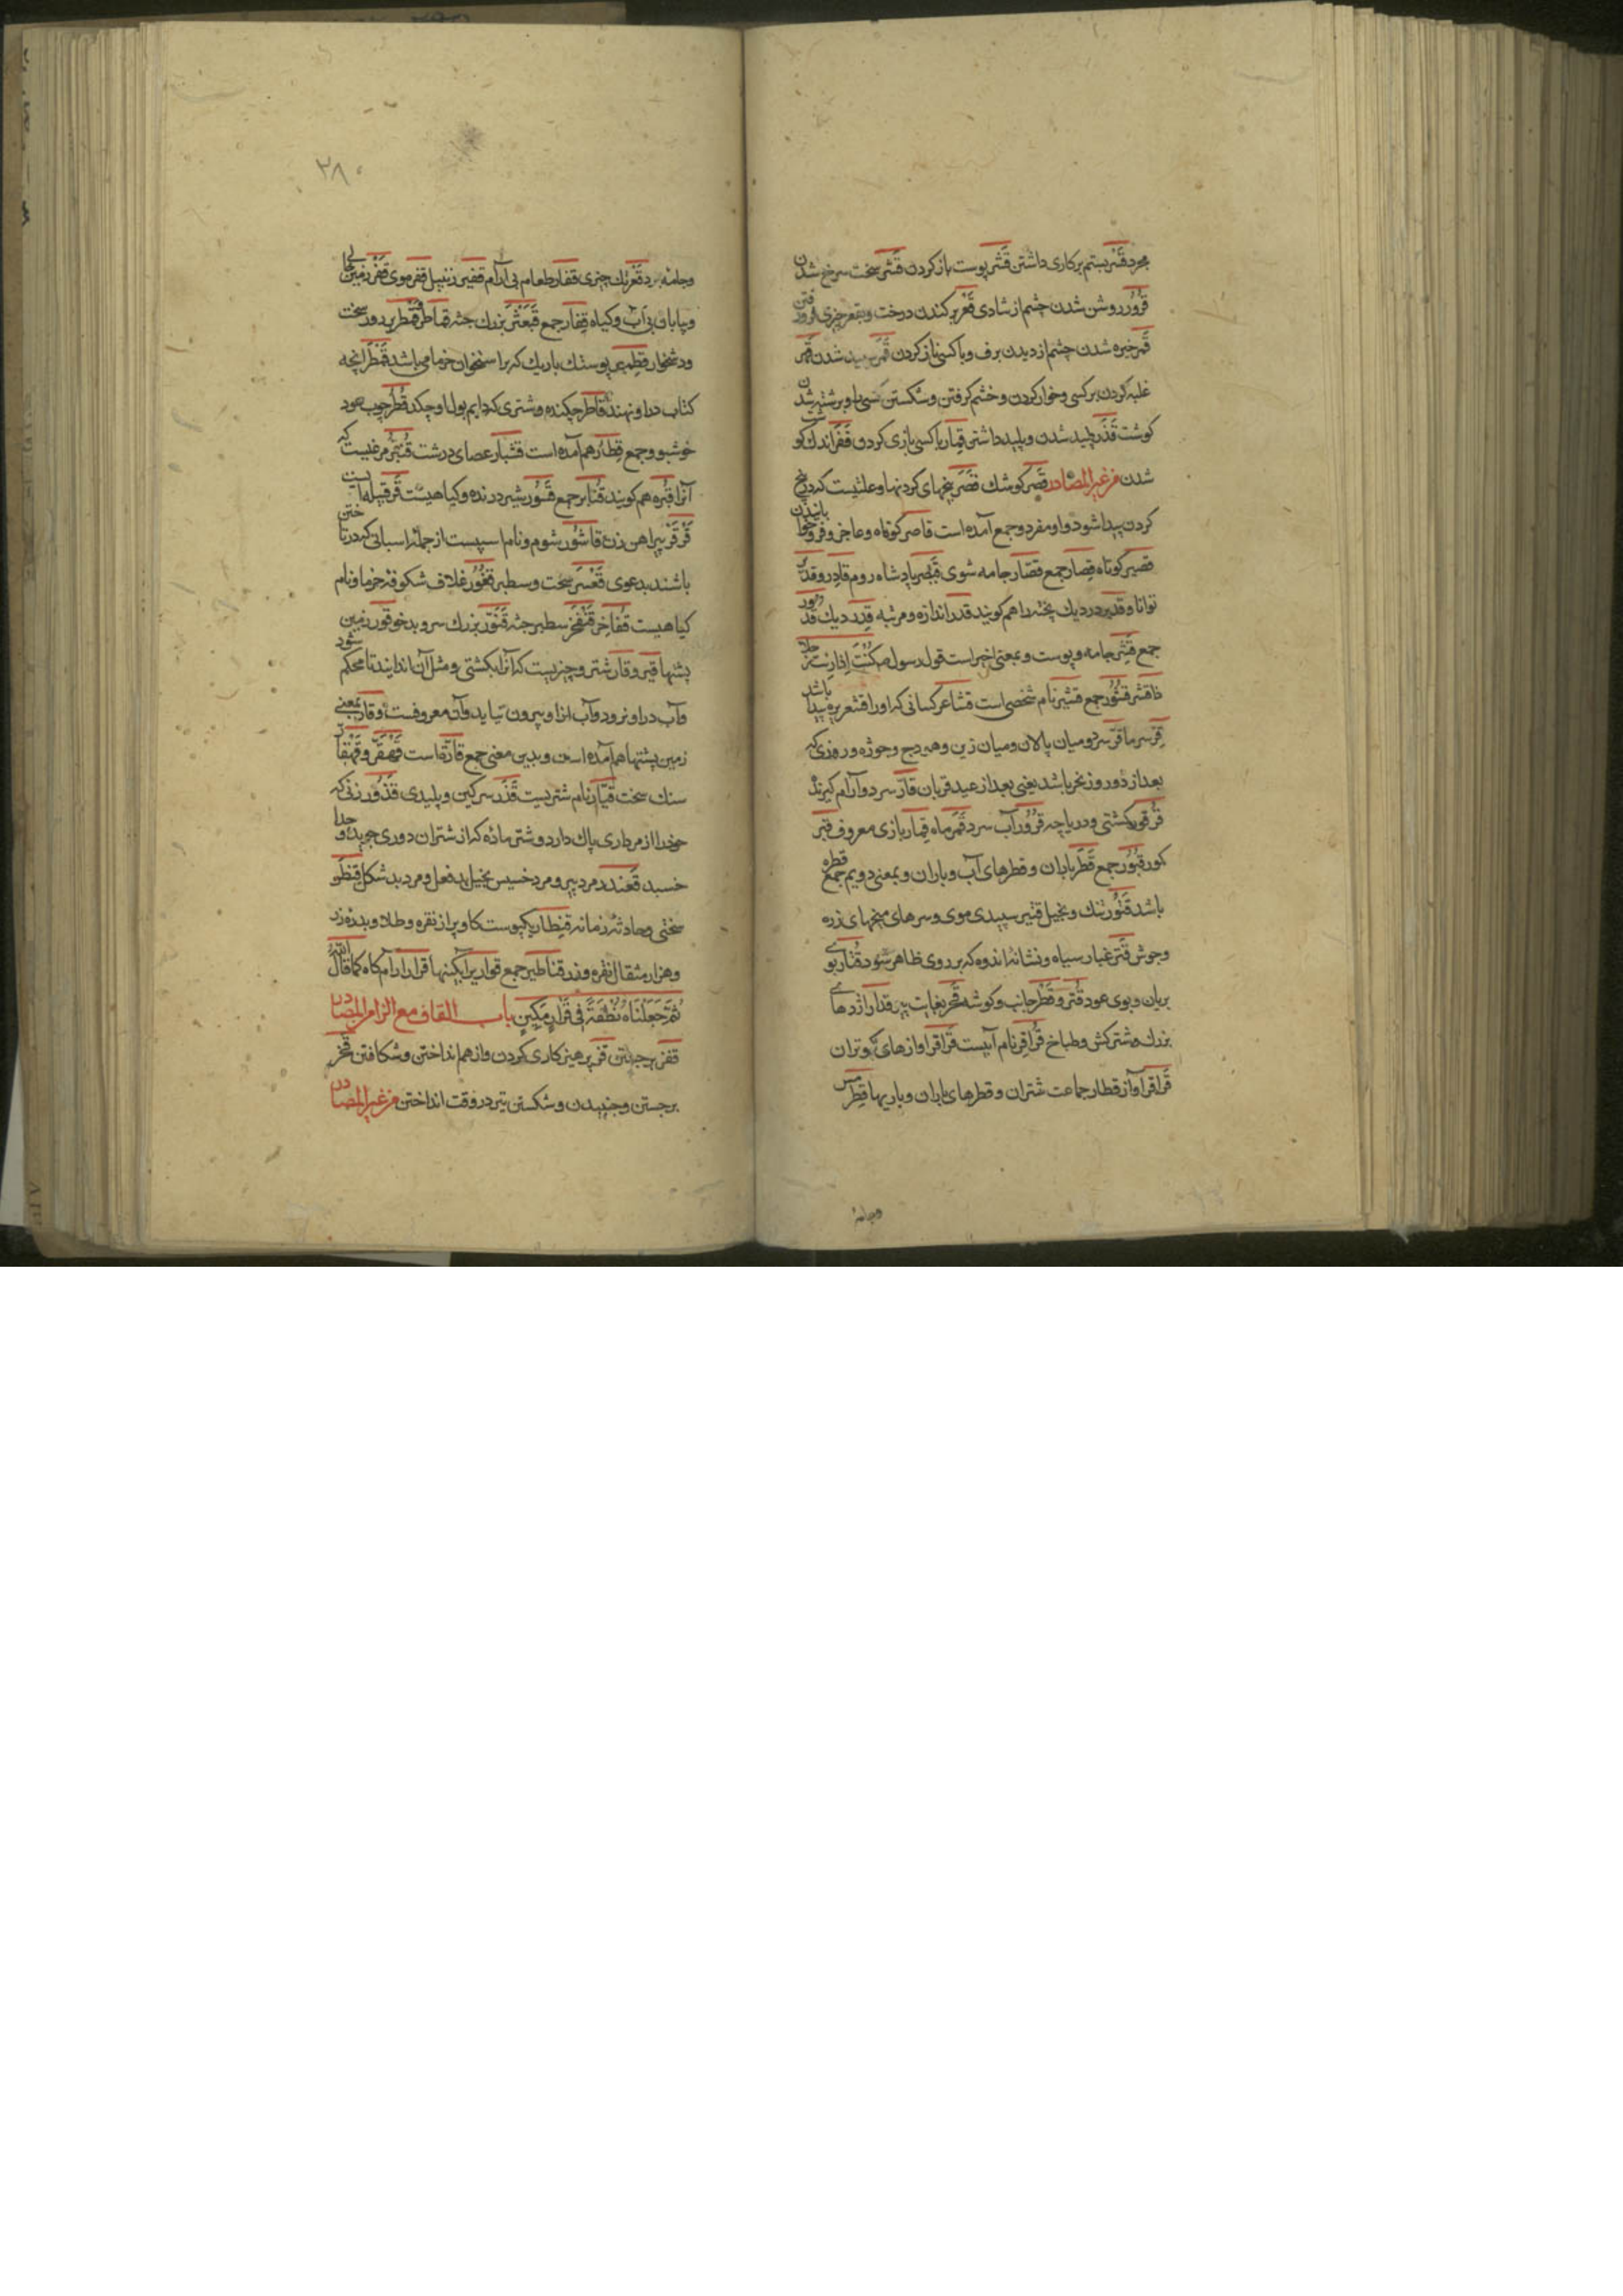 مجرد قسر بستم بر کاری داشتن قشر پوست باز کردن قشر سخت سرخ شدن
قرور روشن شدن چشم از شادی قعر بر کندن درخت و بقعر چیزی فرو رفتن
قمر خیره شدن چشم از دیدن برف و با کسی ناز کردن قمر سپید شدن قهر
غلبه کردن بر کسی و خوار کردن و خشم کرفتن و شکستن کسی را و برشته شدن
کوشت قذر پلید شدن و پلید داشتن قمار با کسی بازی کردن قفر اندک کوشت
شدن من غیر المصادر قصر کوشک قصر بیخهای کردنها و علتیست که در بیخ
کردن پیدا شود و او مفرد و جمع آمده است قاصر کوتاه و عاجز و فرو خوابانیدن
قصیر کوتاه قصار جمع قصار جامه شوی قیصر پادشاه روم قادر و قدیر
توانا و قدیر در دیک پخته را هم کویند قدر اندازه و مرتبه قدر دیک قدور
جمع قشر جامه و پوست و بمعنی اخیر است قول رسول کنت اذا رایت رجلا
ذا قشر قشور جمع قشیر نام شخصی است قشاعر کسانی که او را قشعریره پیدا باشد
قر سرما قر سرد و میان پالان و میان زین و هودج و جوژه و روزی که
بعد از دو روز نحر باشد یعنی بعد از عید قربان قار سرد و آرام کیرنده
قرقور کشتی و دریاچه قرور آب سرد قمر ماه قمار بازی معروف قبر
کور قبور جمع قطر باران و قطرهای آب و باران و بمعنی دویم جمع قطره
باشد قتور تنک و بخیل قتیر سپیدی موی و سرهای میخهای زره
و جوش قتر غبار سیاه و نشانه اندوه که بر روی ظاهر شود قتار بوی
بریان و بوی عود قتر و قطر جانب و کوشه قحر بغایت پیر قدار اژدهای
بزرک و شترکش و طباخ قراقر نام آبیست قراقر آوازهای کبوتران
قراقر آواز قطار جماعت شتران و قطرهای باران و باریها قطر مس
وجامهٔ
۳۸۰
و جامهٔ برد قعر تک چیزی قفار طعام بی ارام قفیر زنبیل قفر موی قفر زمین خالی
و بیابان بی آب و کیاه قفار جمع قبعثر بزرک جثه قماطر قمطریر روز سخت
و دشخوار قطمیر پوستک باریک که بر استخوان خرما می باشد قمطر آنچه
کتاب در او نهند قاطر چکنده و شتری که دایم بول او چکد قطر چوب عود
خوشبو و جمع قطار هم آمده است قشبار عصای درشت قنبر مرغیست که
آنرا قبره هم کویند قنابر جمع قسور شیر درنده و کیاهیست قر قبیله ایست
قرقر پیراهن زن قاشور شوم و نام اسپیست از جملهٔ اسبانی که در تاختن
باشند بدعوی قعسر سخت و سطبر قفور غلاف شکوفه خرما و نام
کیاهیست قفاخر قنفخر سطبر جثه قنور بزرک سر و بدخو قور زمین
پشتها قیر و قار شتر و چیزیست که آنرا بکشتی و مثل آن اندایند تا محکم شود
و آب در او نرود و آب از او بیرون نیاید و آن معروفست و قار بمعنی
زمین پشتها هم آمده است و بدین معنی جمع قاره است قهقر و قهقار
سنک سخت قیار نام شتریست قذر سرکین و پلیدی قذور زنی که
خود را از مرداری پاک دارد و شتر ماده که از شتران دوری جوید و جدا
خسبد قعندر مرد پیر و مرد خسیس بخیل بد فعل و مرد بد شکل قنطر
سختی و حادثه زمانه قنطار یکپوست کاو پر از نقره و طلا و بدره زر
و هزار مثقال نقره و زر قناطیر جمع قواریر آبکینها قرار آرامکاه کما قال الله
ثم جعلناه نطفة فی قرار مکین باب القاف مع الزاء المصادر
قفز برجستن قز پرهیزکاری کردن و از هم انداختن و شکافتن قحز
برجستن و جنبیدن و شکستن تیر در وقت انداختن من غیر المصادر